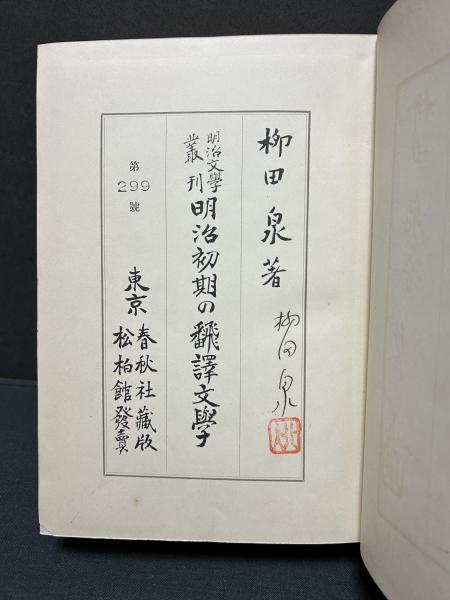 柳田泉著
柳田泉
明治文學
叢刊
明治初期の飜譯文學
第
299
號
東京
春秋社藏版
松柏館發賣